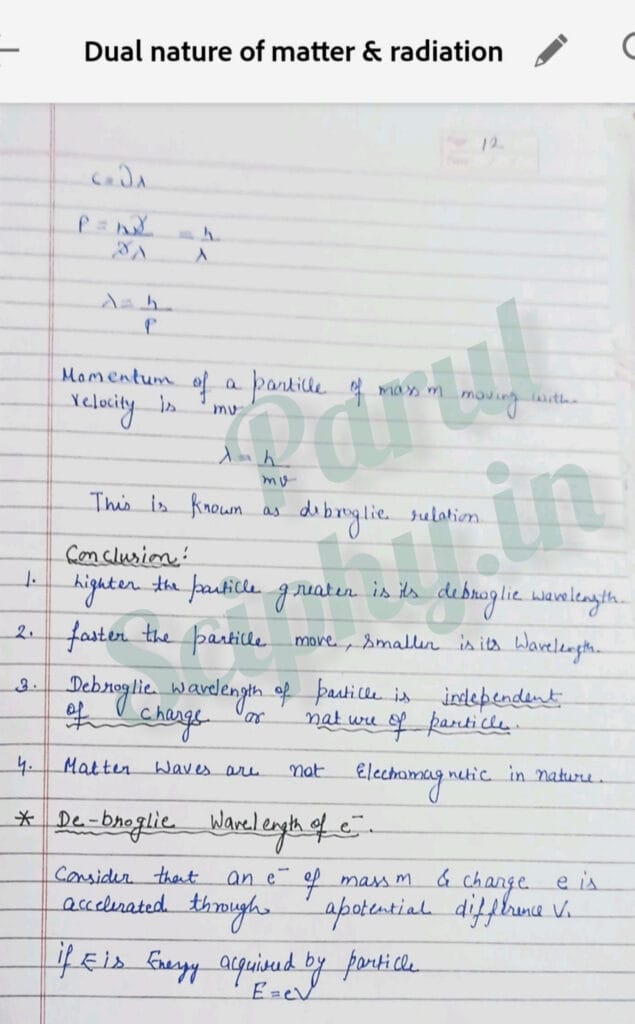 Dual nature of matter & radiation
12
c = νλ
P = hν / νλ = h / λ
λ = h / P
Momentum of a particle of mass m moving with
velocity is mv
λ = h / mv
This is known as debroglie relation
Conclusion:
1. lighter the particle greater is its debroglie wavelength.
2. faster the particle move, smaller is its Wavelength.
3. Debroglie wavelength of particle is independent
of charge or nature of particle.
4. Matter waves are not Electromagnetic in nature.
* De-broglie Wavelength of e⁻.
Consider that an e⁻ of mass m & charge e is
accelerated through a potential difference V.
if E is Energy acquired by particle
E = eV
Parul
Sciphy.in